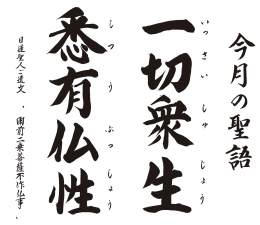 今月の聖語
一切衆生
いっさいしゅじょう
悉有仏性
しつうぶっしょう
日蓮聖人ご遺文、爾前二乗菩薩不作仏事、